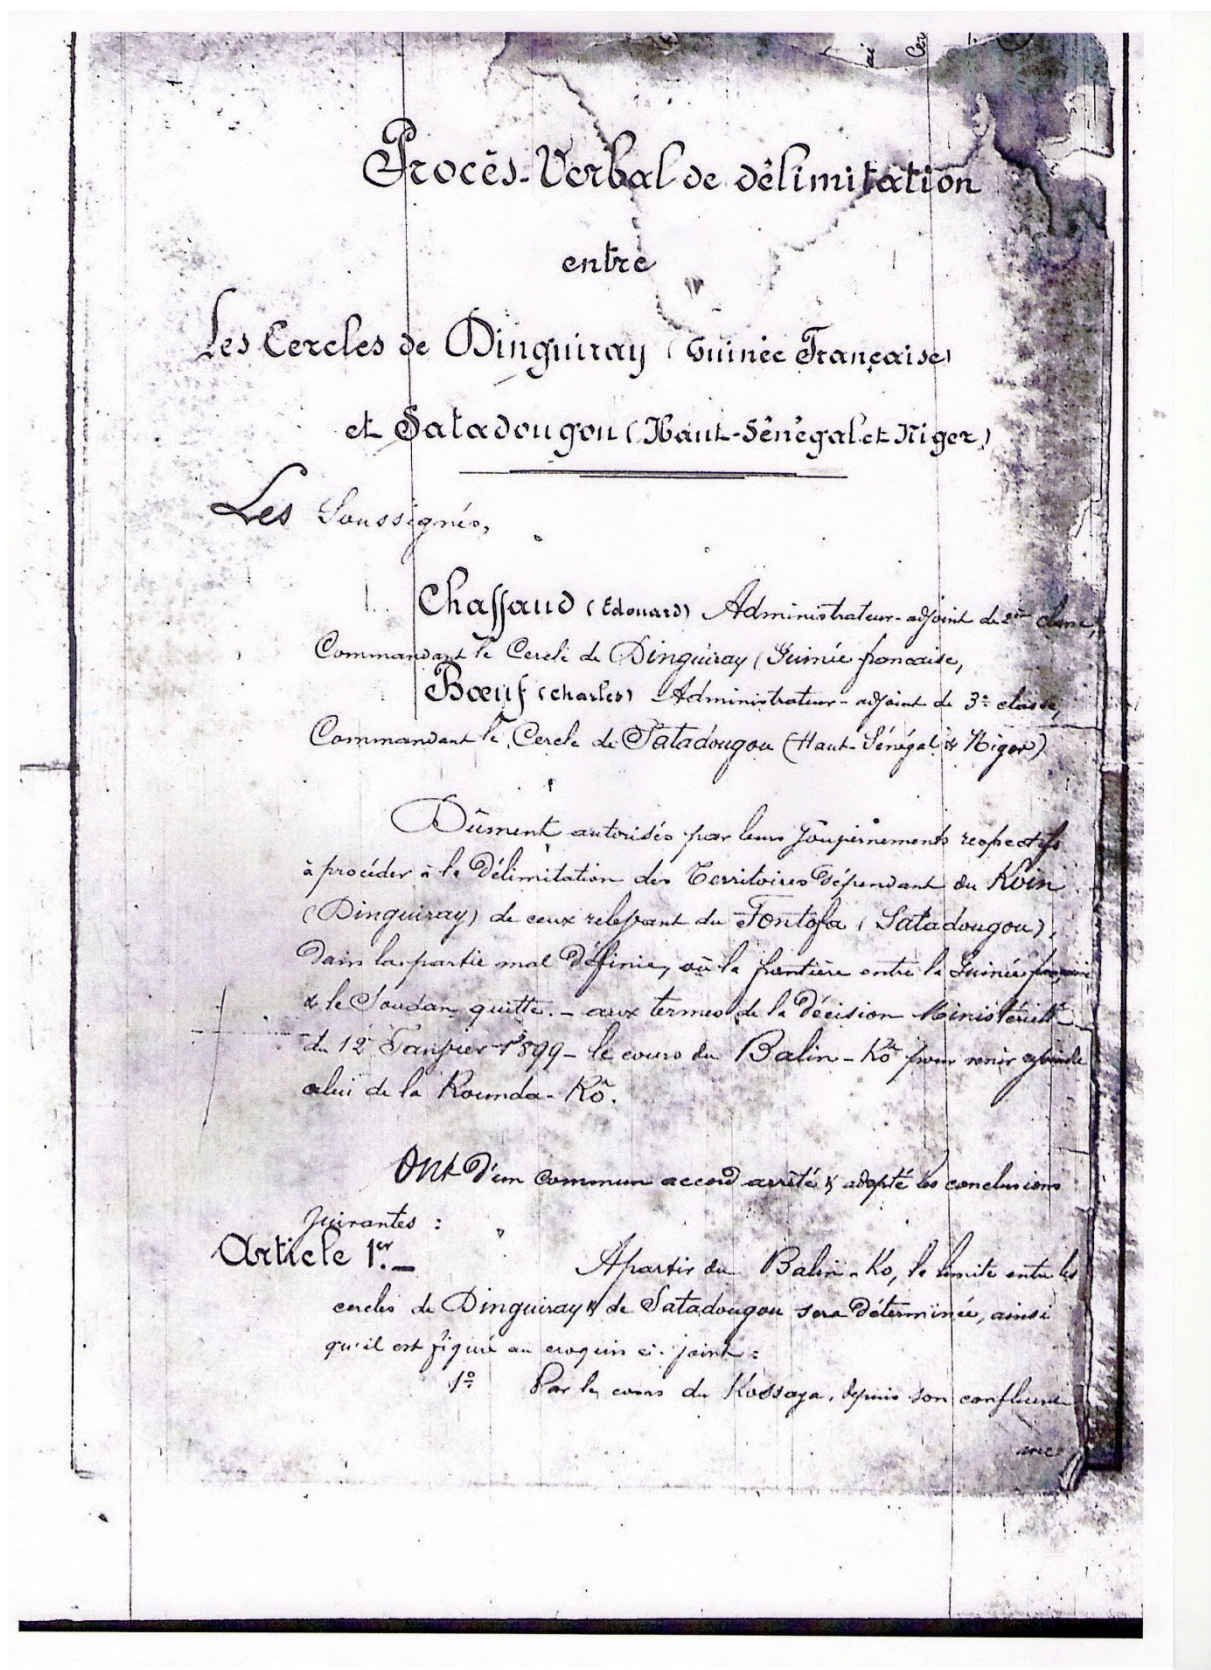 Procès-Verbal de délimitation
entre
Les Cercles de Dinguiray (Guinée Française)
et Satadougou (Haut-Sénégal et Niger)
Les Soussignés,
Chassaud (Edouard) Administrateur-adjoint de 2me classe,
Commandant le Cercle de Dinguiray (Guinée française,
Bœuf (Charles) Administrateur-adjoint de 3e classe,
Commandant le Cercle de Satadougou (Haut-Sénégal & Niger)
Dûment autorisés par leurs Gouvernements respectifs
à procéder à la Délimitation des Territoires dépendant du Koïn
(Dinguiray) de ceux relevant du Fontofa (Satadougou),
Dans la partie mal Définie, où la frontière entre la Guinée française
& le Soudan quitte. - aux termes de la Décision Ministérielle
du 12 Janvier 1899 - le cours du Balin-Kô pour venir
celui de la Kounda-Kô.
Ont D'un commun accord arrêté & adopté les conclusions
suivantes :
Article 1er. -
A partir du Balin-Ko, la limite entre les
cercles de Dinguiray & de Satadougou sera Déterminée, ainsi
qu'il est figuré au croquis ci-joint :
1º Par le cours du Kossaya, depuis son confluent
avec